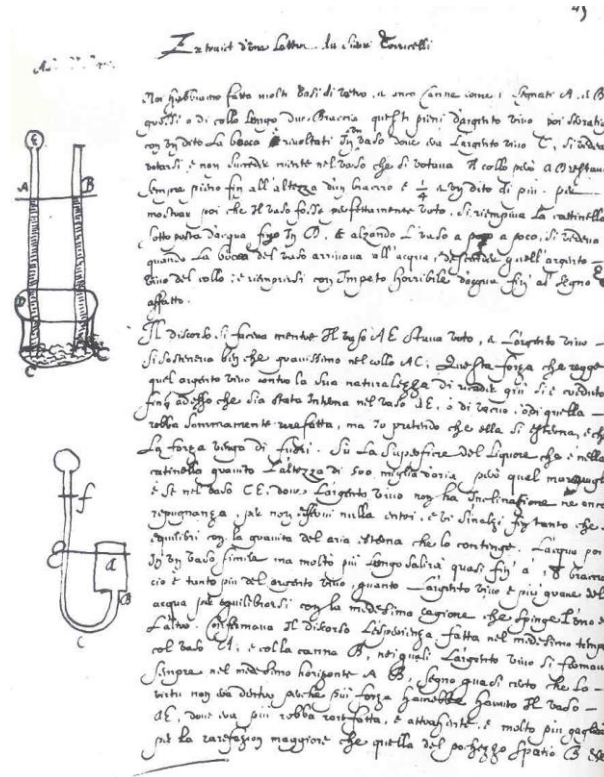 49
Extrait d'une Lettre du Sieur Torricelli
Noi habbiamo fatto molti vasi di vetro, e anco Canne come i segnati A, e B
grossi e di collo longo due Braccia questi pieni d'argento vivo poi serrata
con un dito La bocca e rivoltati In un vaso dove era L'argento vivo C, si vedeva
votarsi, e non succedere niente nel vaso che si votava Il collo però A D restava
sempre pieno fin all'altezza d'un braccio e 1/4 e un dito di più. per
mostrar poi che Il vaso fosse perfettamente voto, si riempiva La cattinella
sotto posta d'acqua fino In D, e alzando L'vaso a poco a poco, si vedeva
quando La bocca del vaso arrivava all'acqua, descender quell'argento
vivo del collo, e riempirsi con Impeto horribile d'acqua fin al segno E
affatto.
Il discorso si faceva mentre Il vaso AE stava voto, e L'argento vivo
si sosteneva ben che gravissimo nel collo AC; Questa forza che regge
quel argento vivo contro la sua naturalezza di ricader giù si è creduto
fin adesso che sia stata Interna nel vaso AE, o di vacuo, o di quella
robba sommamente rarefatta, ma Io pretendo che ella sia esterna, e che
La forza venga di fuori. Su La superficie del Liquore che è nella
catinella gravita L'altezza di 50 miglia d'aria però qual maraviglia
è se nel vaso CE, dove L'argento vivo non ha Inclinatione ne anco
repugnanza, per non esservi nulla entri, e vi s'inalzi fin tanto che
equilibri con la gravità del aria esterna che lo continge. L'acqua poi
In un vaso simile ma molto più Longo salirà quasi fin a 18 braccia
cio è tanto più del argento vivo, quanto L'argento vivo è più grave del
acqua per equilibrarsi con la medesima cagione che spinge L'uno e
L'altro. confermava Il discorso L'esperienza fatta nel medesimo tempo
col vaso A, e colla canna B, nei quali L'argento vivo si fermava
sempre nel medesimo horizonte A B, segno quasi certo che La
virtù non era dentro perche più forza havrebbe havuto Il vaso
AE, dove era più robba rarefatta, e attraente, e molto più gagliarda
per la rarefazion maggiore che quella del pochezzo spatio B
E
A
B
D
C
C
f
g
a
B
C